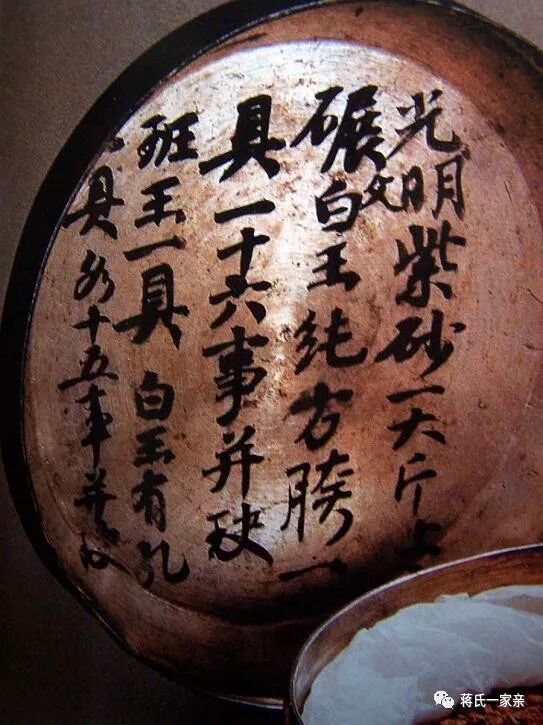 光明紫砂一大斤上
碾文白玉纯方胯一
具一十六事并玦
斑玉一具 白玉有孔
具各十五事并玦
蒋氏一家亲